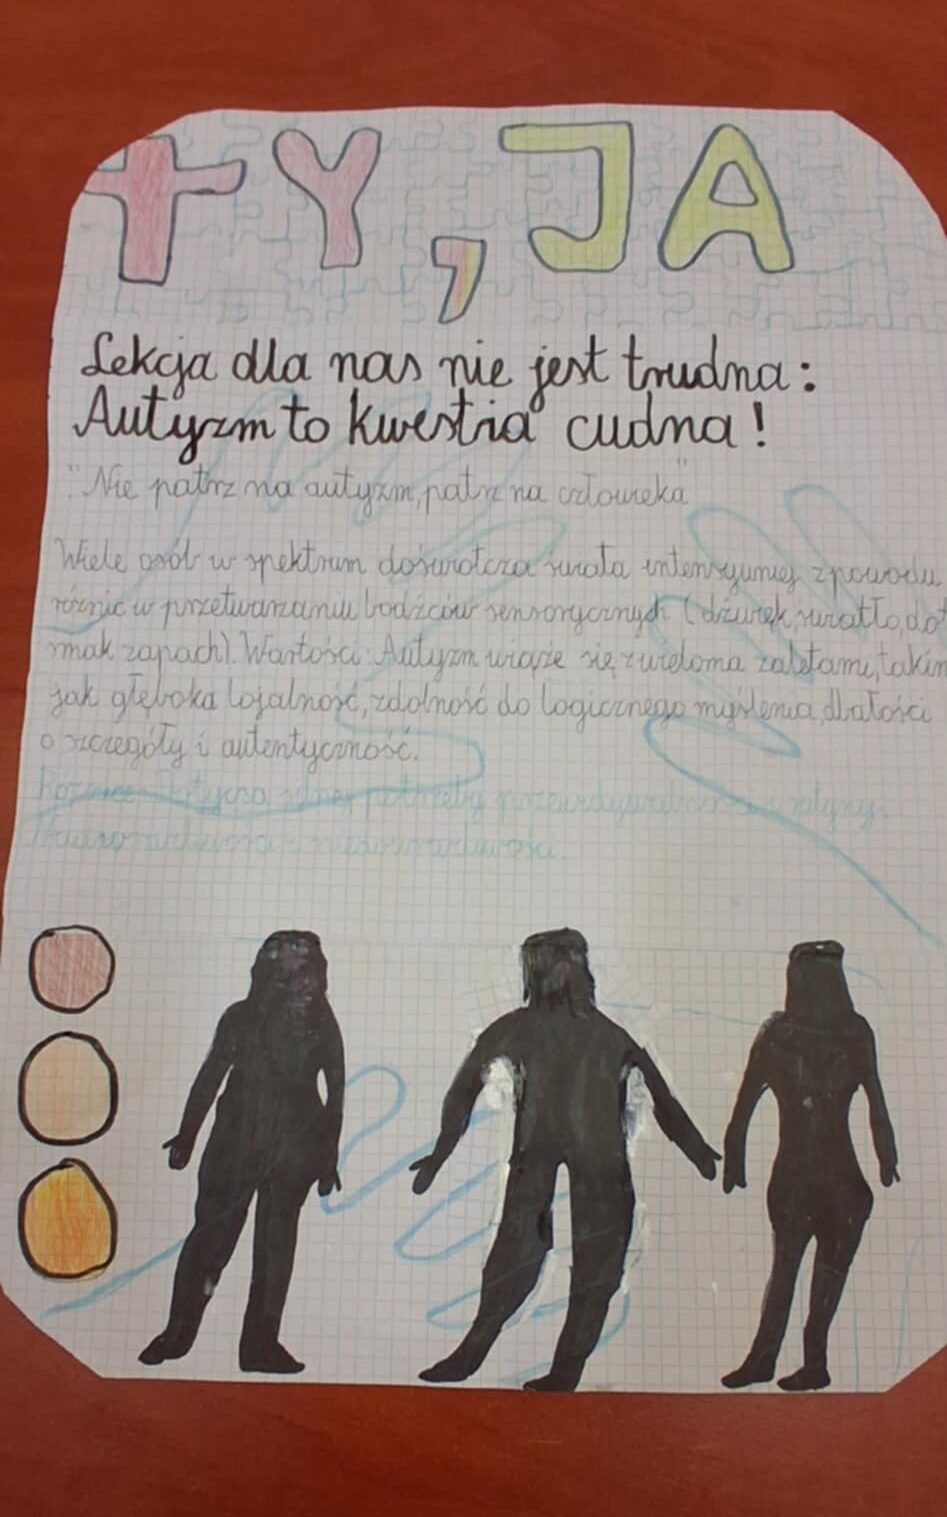 TY, JA
Lekcja dla nas nie jest trudna:
Autyzm to kwestia cudna!
"Nie patrz na autyzm, patrz na człowieka"
Wiele osób w spektrum doświadcza świata intensywniej z powodu
różnic w przetwarzaniu bodźców sensorycznych (dźwięk, światło, do
smak zapach). Wartości: Autyzm wiąże się z wieloma zaletami, takim
jak głęboka lojalność, zdolność do logicznego myślenia, dbałości
o szczegóły i autentyczność.
Różnice: Dotyczą silnej potrzeby przewidywalności i rutyny.